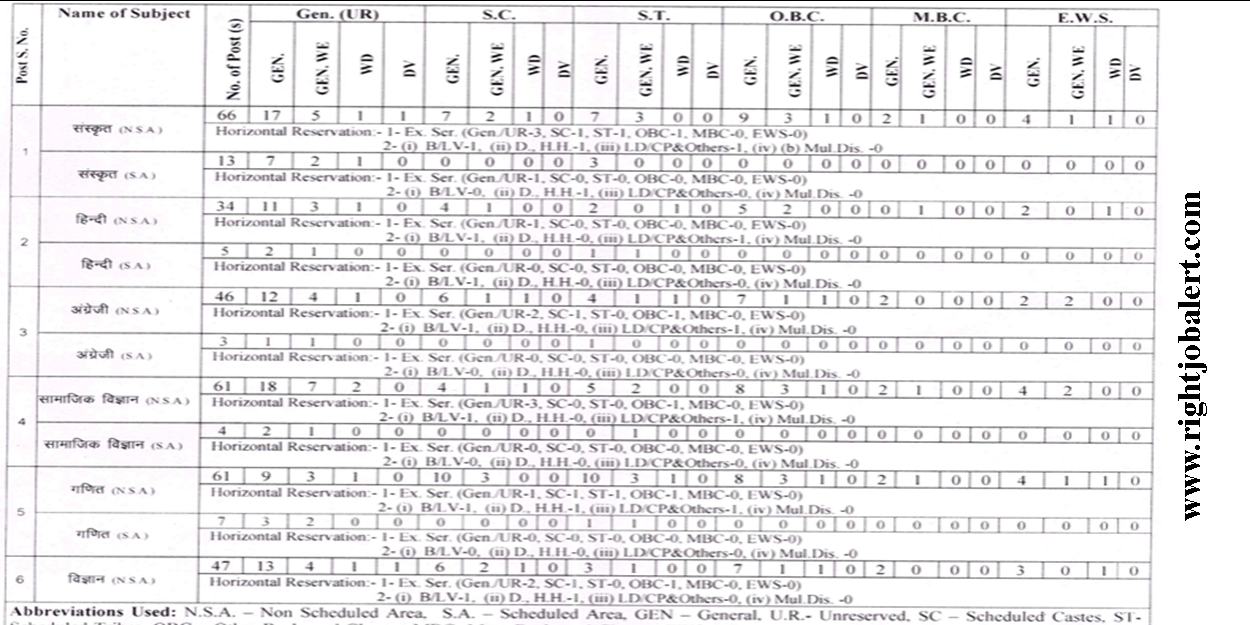 Post S. No.
Name of Subject
No. of Post (s)
Gen. (UR) S.C. S.T. O.B.C. M.B.C. E.W.S.
GEN. GEN. WE WD DV GEN. GEN. WE WD DV GEN. GEN. WE WD DV GEN. GEN. WE WD DV GEN. GEN. WE WD DV GEN. GEN. WE WD DV
1
संस्कृत (N.S.A.)
66 17 5 1 1 7 2 1 0 7 3 0 0 9 3 1 0 2 1 0 0 4 1 1 0
Horizontal Reservation:- 1- Ex. Ser. (Gen./UR-3, SC-1, ST-1, OBC-1, MBC-0, EWS-0)
2- (i) B/LV-1, (ii) D., H.H.-1, (iii) LD/CP&Others-1, (iv) (b) Mul.Dis. -0
संस्कृत (S.A.)
13 7 2 1 0 0 0 0 0 3 0 0 0 0 0 0 0 0 0 0 0 0 0 0 0
Horizontal Reservation:- 1- Ex. Ser. (Gen./UR-1, SC-0, ST-0, OBC-0, MBC-0, EWS-0)
2- (i) B/LV-0, (ii) D., H.H.-1, (iii) LD/CP&Others-0, (iv) Mul.Dis. -0
2
हिन्दी (N.S.A.)
34 11 3 1 0 4 1 0 0 2 0 1 0 5 2 0 0 0 1 0 0 2 0 1 0
Horizontal Reservation:- 1- Ex. Ser. (Gen./UR-1, SC-0, ST-0, OBC-0, MBC-0, EWS-0)
2- (i) B/LV-1, (ii) D., H.H.-0, (iii) LD/CP&Others-1, (iv) Mul.Dis. -0
हिन्दी (S.A.)
5 2 1 0 0 0 0 0 0 1 1 0 0 0 0 0 0 0 0 0 0 0 0 0 0
Horizontal Reservation:- 1- Ex. Ser. (Gen./UR-0, SC-0, ST-0, OBC-0, MBC-0, EWS-0)
2- (i) B/LV-1, (ii) D., H.H.-0, (iii) LD/CP&Others-0, (iv) Mul.Dis. -0
3
अंग्रेजी (N.S.A.)
46 12 4 1 0 6 1 1 0 4 1 1 0 7 1 1 0 2 0 0 0 2 2 0 0
Horizontal Reservation:- 1- Ex. Ser. (Gen./UR-2, SC-1, ST-0, OBC-0, MBC-0, EWS-0)
2- (i) B/LV-1, (ii) D., H.H.-0, (iii) LD/CP&Others-1, (iv) Mul.Dis. -0
अंग्रेजी (S.A.)
3 1 1 0 0 0 0 0 0 1 0 0 0 0 0 0 0 0 0 0 0 0 0 0 0
Horizontal Reservation:- 1- Ex. Ser. (Gen./UR-0, SC-0, ST-0, OBC-0, MBC-0, EWS-0)
2- (i) B/LV-0, (ii) D., H.H.-0, (iii) LD/CP&Others-0, (iv) Mul.Dis. -0
4
सामाजिक विज्ञान (N.S.A.)
61 18 7 2 0 4 1 1 0 5 2 0 0 8 3 1 0 2 1 0 0 4 2 0 0
Horizontal Reservation:- 1- Ex. Ser. (Gen./UR-3, SC-0, ST-0, OBC-1, MBC-0, EWS-0)
2- (i) B/LV-1, (ii) D., H.H.-0, (iii) LD/CP&Others-1, (iv) Mul.Dis. -0
सामाजिक विज्ञान (S.A.)
4 2 1 0 0 0 0 0 0 0 1 0 0 0 0 0 0 0 0 0 0 0 0 0 0
Horizontal Reservation:- 1- Ex. Ser. (Gen./UR-0, SC-0, ST-0, OBC-0, MBC-0, EWS-0)
2- (i) B/LV-0, (ii) D., H.H.-0, (iii) LD/CP&Others-0, (iv) Mul.Dis. -0
5
गणित (N.S.A.)
61 9 3 1 0 10 3 0 0 10 3 1 0 8 3 1 0 2 1 0 0 4 1 1 0
Horizontal Reservation:- 1- Ex. Ser. (Gen./UR-1, SC-1, ST-1, OBC-1, MBC-0, EWS-0)
2- (i) B/LV-1, (ii) D., H.H.-0, (iii) LD/CP&Others-1, (iv) Mul.Dis. -0
गणित (S.A.)
7 3 2 0 0 0 0 0 0 1 1 0 0 0 0 0 0 0 0 0 0 0 0 0 0
Horizontal Reservation:- 1- Ex. Ser. (Gen./UR-0, SC-0, ST-0, OBC-0, MBC-0, EWS-0)
2- (i) B/LV-0, (ii) D., H.H.-0, (iii) LD/CP&Others-0, (iv) Mul.Dis. -0
6
विज्ञान (N.S.A.)
47 13 4 1 1 6 2 1 0 3 1 0 0 7 1 1 0 2 0 0 0 3 0 1 0
Horizontal Reservation:- 1- Ex. Ser. (Gen./UR-2, SC-1, ST-0, OBC-0, MBC-0, EWS-0)
2- (i) B/LV-1, (ii) D., H.H.-0, (iii) LD/CP&Others-1, (iv) Mul.Dis. -0
Abbreviations Used: N.S.A. – Non Scheduled Area, S.A. – Scheduled Area, GEN – General, U.R.- Unreserved, SC – Scheduled Castes, ST-
www.rightjobalert.com